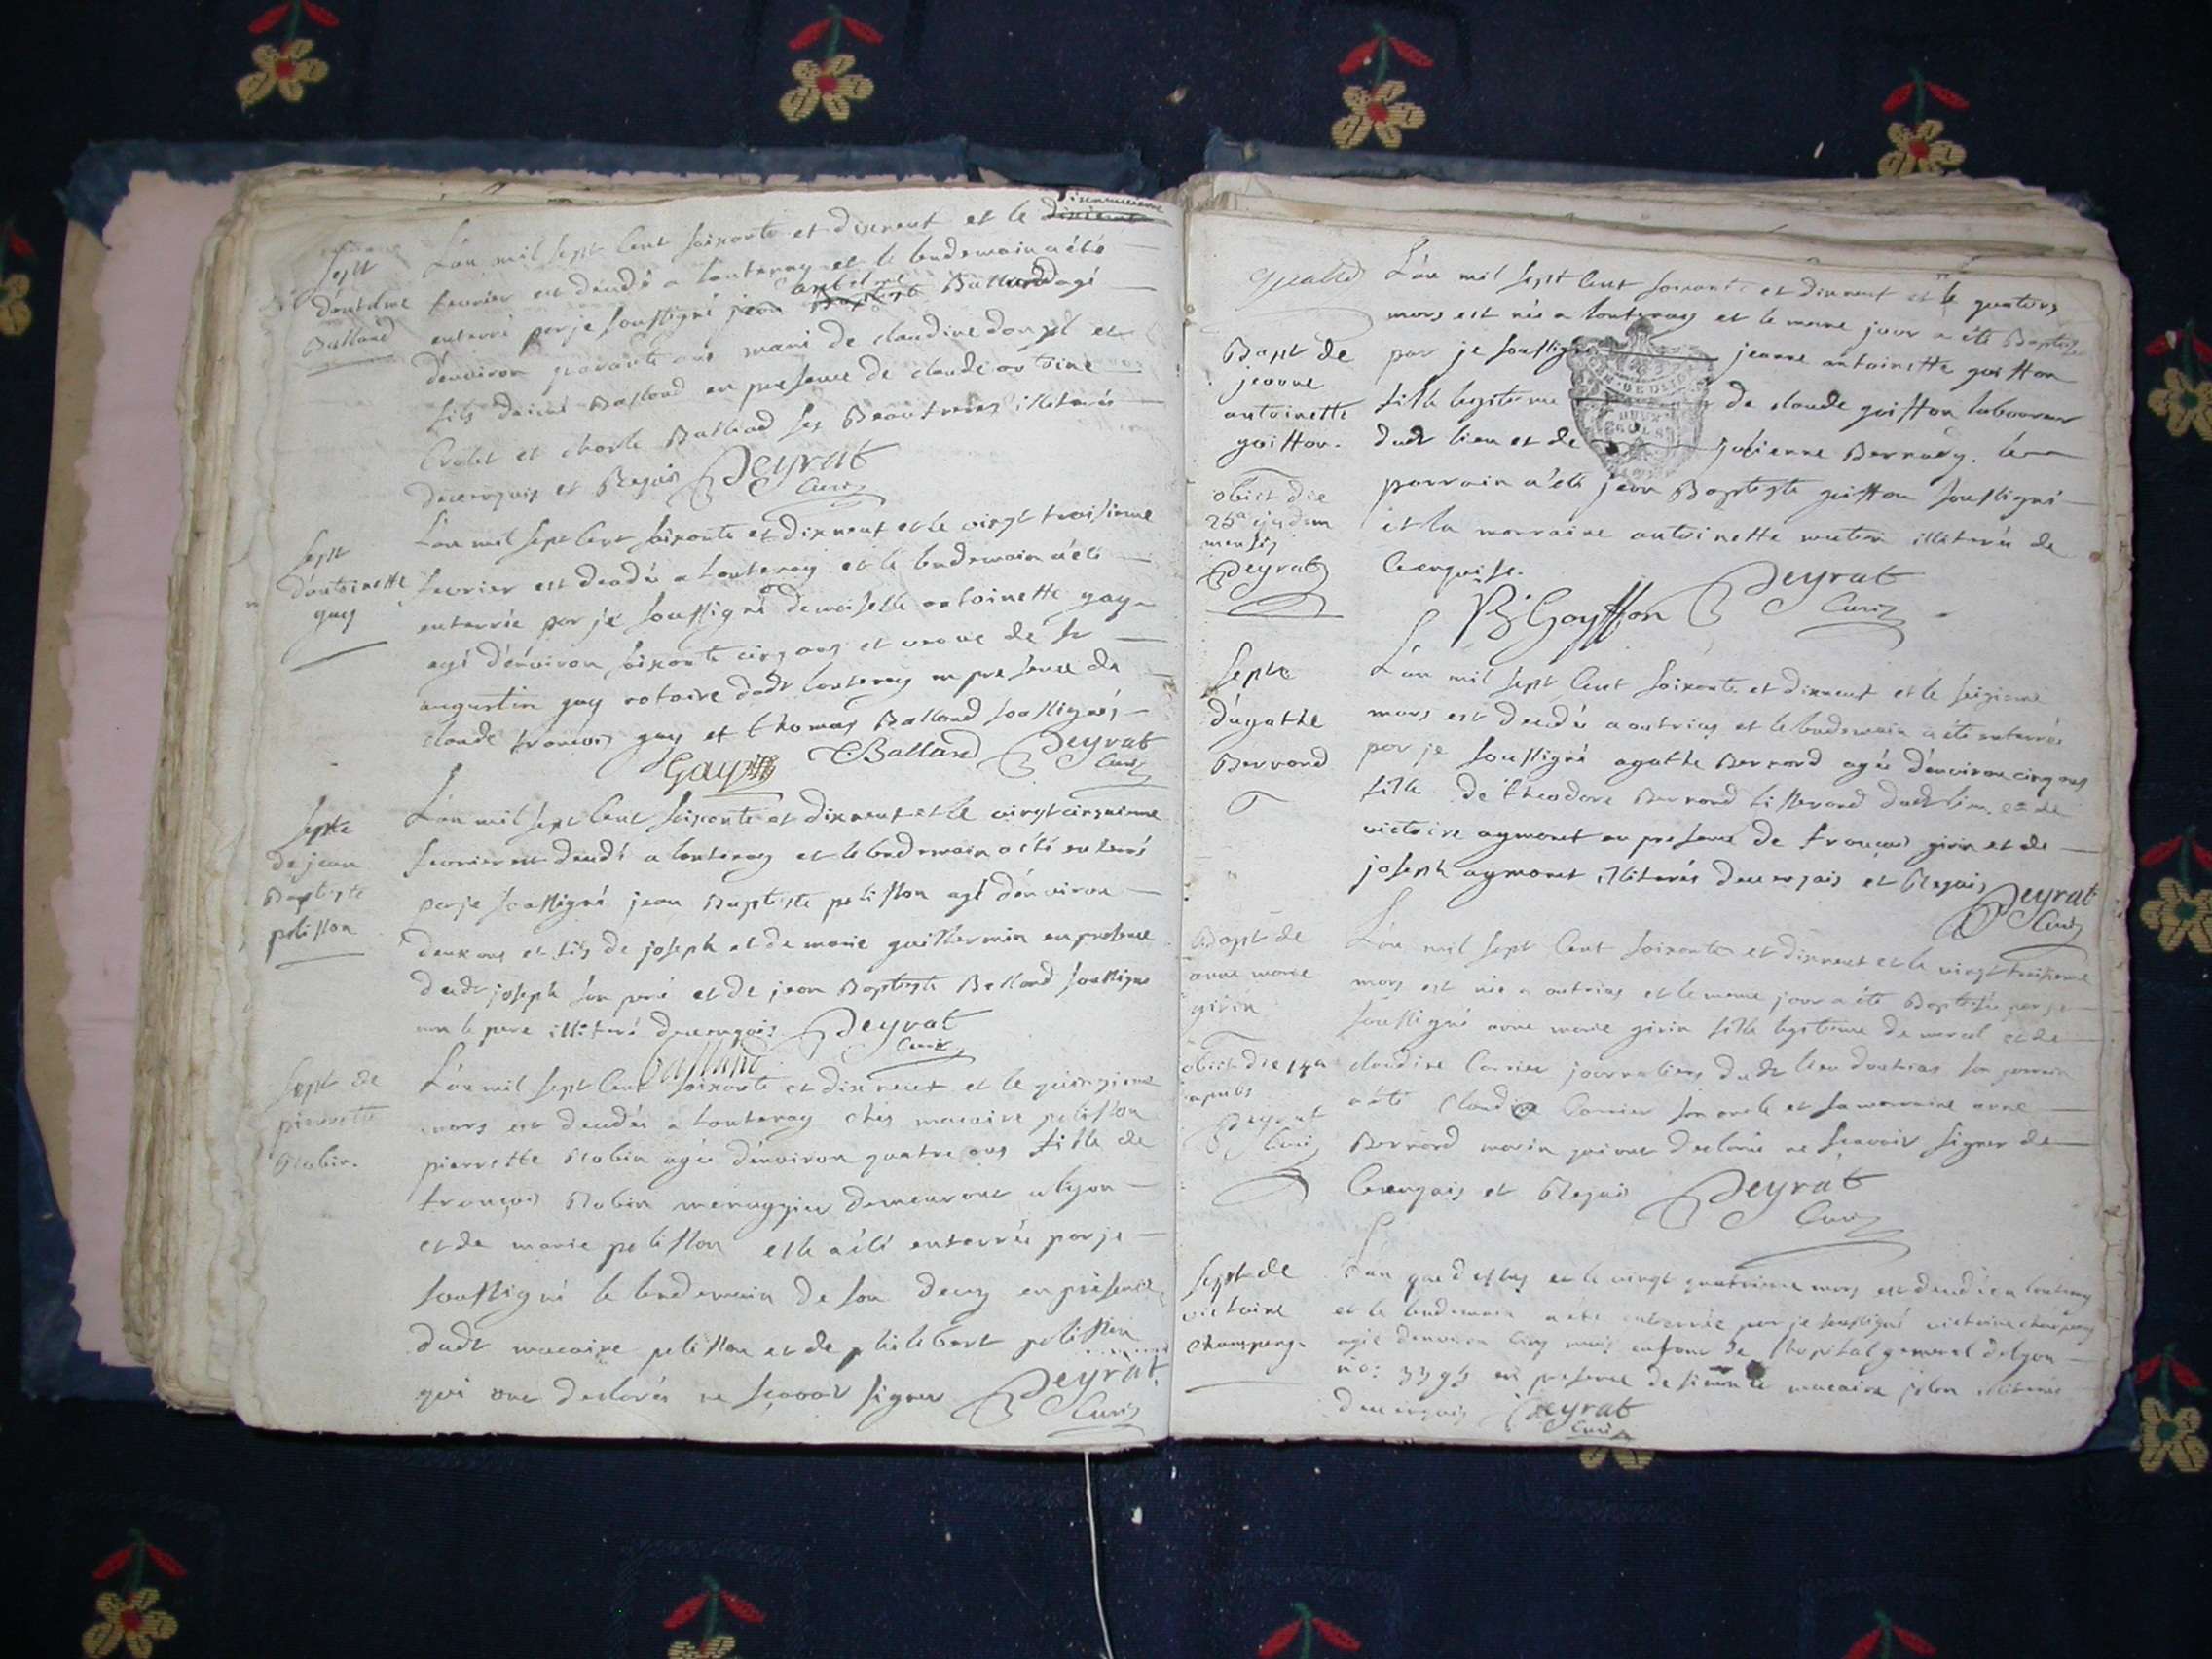 Sept
d'anthelme
Balland
L'an mil sept cent soixante et dixneuf et le dixieme
fevrier est decedé a lontenay et le lendemain a été
enterré par je soussigné jean Baptiste Balland agé
anthelme
d'environ quarante ans mari de claudine donzel et
fils d'aimé Balland en presence de claude antoine
et charle Balland ses Beaufreres illiterés
de ce enquis et Requis Peyrat
Curé
Sept
d'antoinette
guy
L'an mil sept cent soixante et dixneuf et le vingt troisieme
fevrier est decedée a lontenay et le lendemain a été
enterrée par je soussigné demoiselle antoinette guy
agé d'environ soixante cinq ans et veuve de sr
augustin guy notaire dudt lontenay en presence de
claude françois guy et thomas Balland soussignés
Guy Balland Peyrat
Curé
Septe
de jean
Baptiste
pelisson
L'an mil sept cent soixante et dixneuf et le vingt cinquieme
fevrier est decedé a lontenay et le lendemain a été enterré
par je soussigné jean Baptiste pelisson agé d'environ
deux ans et fils de joseph et de marie guillermin en presence
dudt joseph son peré et de jean Baptiste Balland soussigné
non le pere illiteré de ce enquis Peyrat
Curé
balland
Sept de
pierrette
Robin.
L'an mil sept cent soixante et dixneuf et le quinzieme
mars est decedée a lontenay chés macaire pelisson
pierrette Robin agée d'environ quatre ans fille de
françois Robin menuggier demeurant a lyon
et de marie pelisson elle a été enterrée par je
soussigné le lendemain de son decez en présence
dudt macaire pelisson et de philibert pelisson
qui ont declarés ne sçavoir signer Peyrat
Curé
Bapt de
jeanne
antoinette
guiffon.
obiit die
25a ejusdem
mensis
Peyrat
L'an mil sept cent soixante et dixneuf et le quatorz
mars est née a lontenay et le meme jour a été Baptisé
par je soussigné jeanne antoinette guiffon
fille legitime de claude guiffon laboureur
dudt lieu et de julienne Bernard. le
parrain a été jean Baptiste guiffon soussigné
et la marraine antoinette illiterée de
ce enquise.
B Goyffon Peyrat
Curé
Septe
d'agathe
Bernard
L'an mil sept cent soixante et dixneuf et le seizieme
mars est decedée a outrias et le lendemain a été enterrée
par je soussigné agathe Bernard agée d'environ cinq ans
fille de theodore Bernard tisserand dudt lieu et de
victoire aymonet en presence de françois girin et de
joseph aymonet illiterés de ce enquis et Requis Peyrat
Curé
Bapt de
anne marie
girin
obiit die 14a
aprilis
Peyrat
Curé
L'an mil sept cent soixante et dixneuf et le vingt troisieme
mars est née a outrias et le meme jour a été Baptisée par je
soussigné anne marie girin fille legitime de marcel et de
claudine Carrier journaliers dudt lieu d'outrias son parrain
a été claude Carrier son oncle et sa marraine anne
Bernard marin qui ont declarés ne sçavoir signer de
ce enquis et Requis Peyrat
Curé
Sept de
victoire
champeng
L'an que dessus et le vingt quatrieme mars est decedée a lontenay
et le lendemain a été enterrée par je soussigné victoire champeng
agée d'environ cinq mois enfant de l'hopital general de lyon
no: en presence de macaire illiterés
de ce enquis Peyrat
Curé